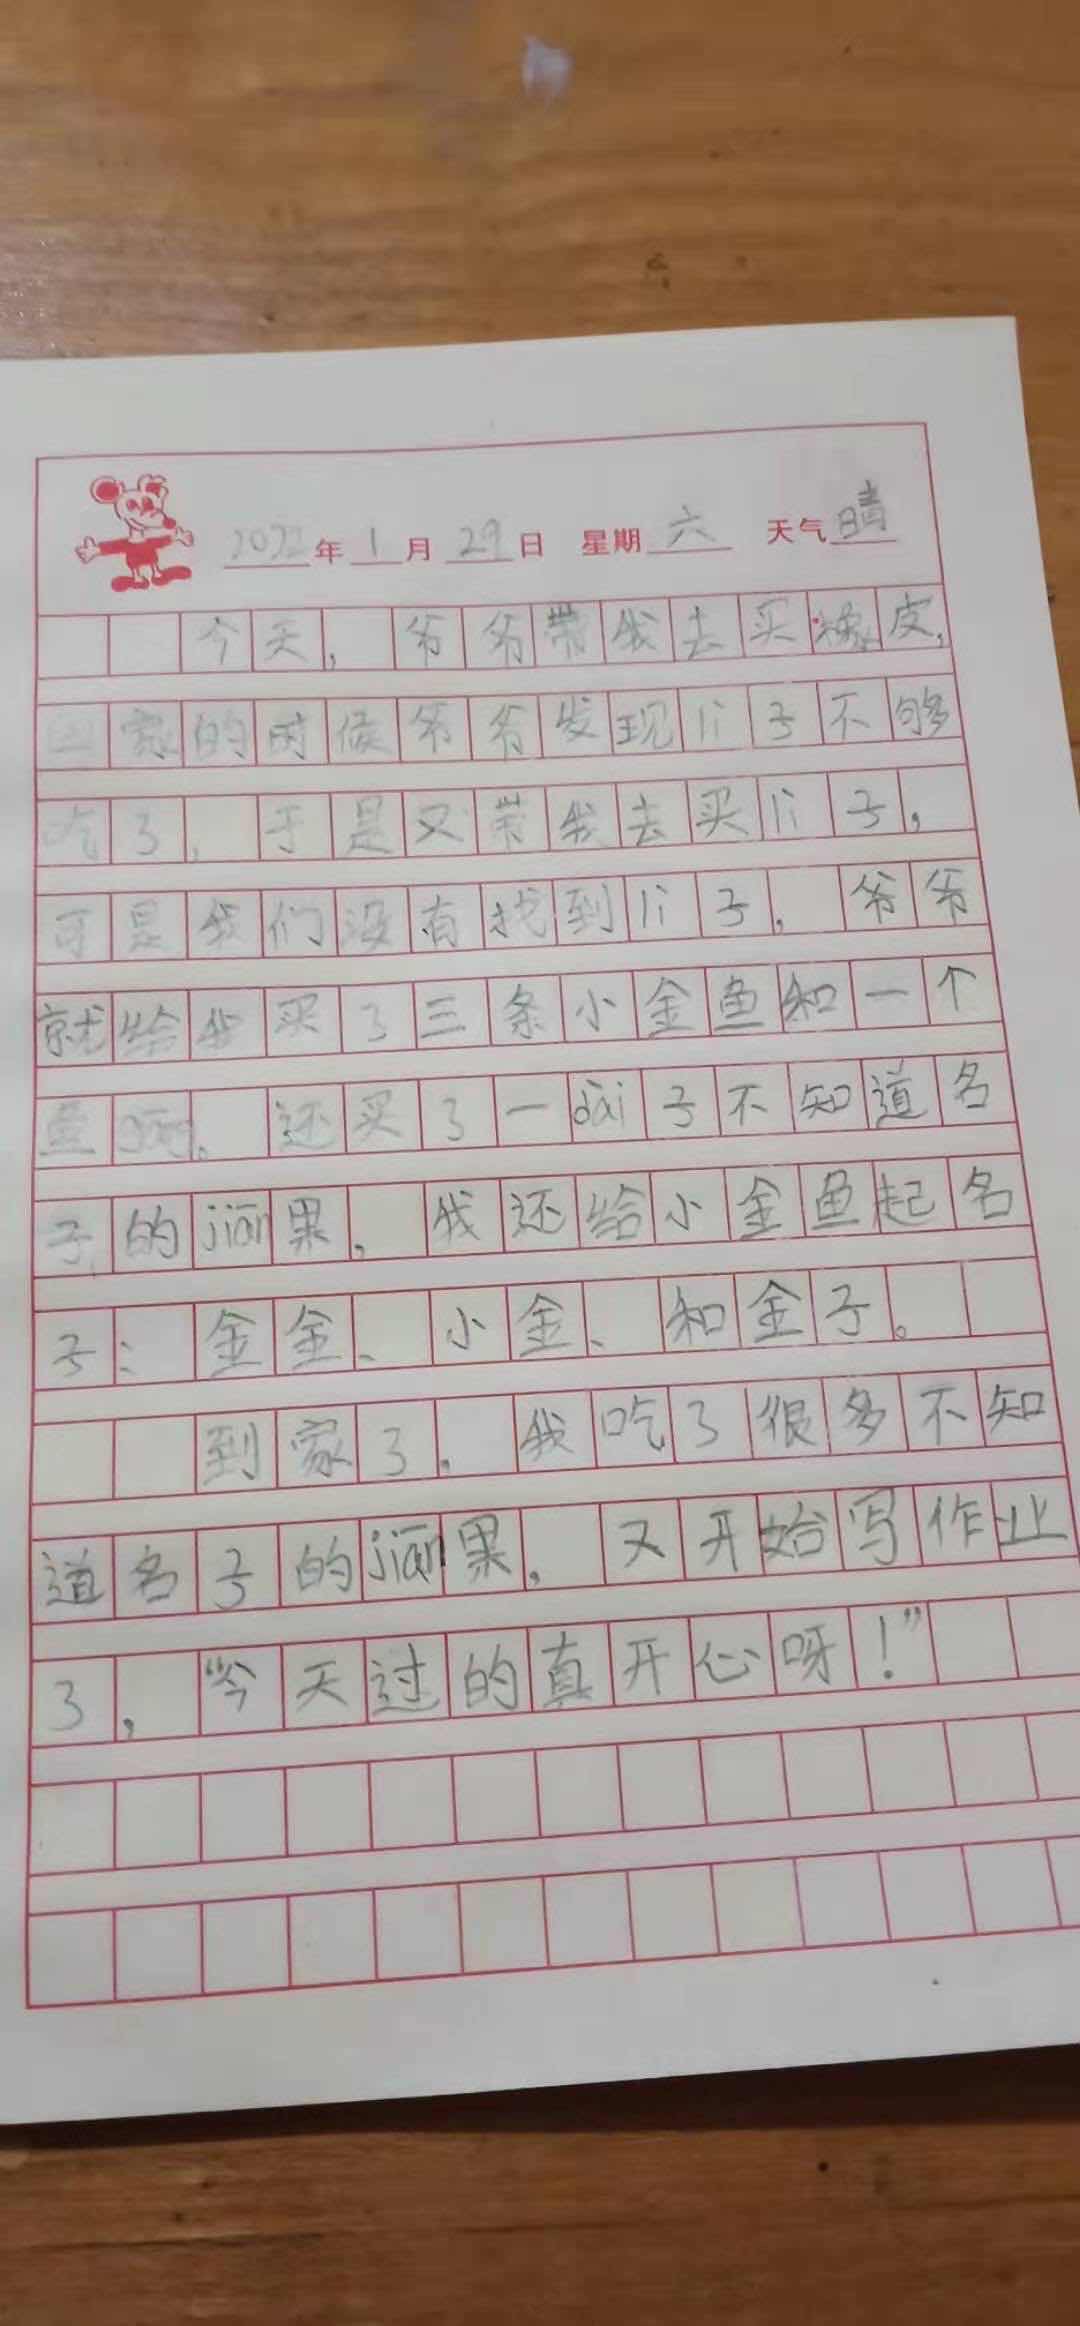 2022年1月29日 星期六 天气晴
今天，爷爷带我去买橡皮，
回家的时候爷爷发现li子不够
吃了，于是又带我去买li子，
可是我们没有找到li子，爷爷
就给我买了三条小金鱼和一个
鱼缸。还买了一dài子不知道名
子的jiān果，我还给小金鱼起名
子：金金、小金、和金子。
到家了，我吃了很多不知
道名子的jiān果，又开始写作业
了，“今天过的真开心呀！”